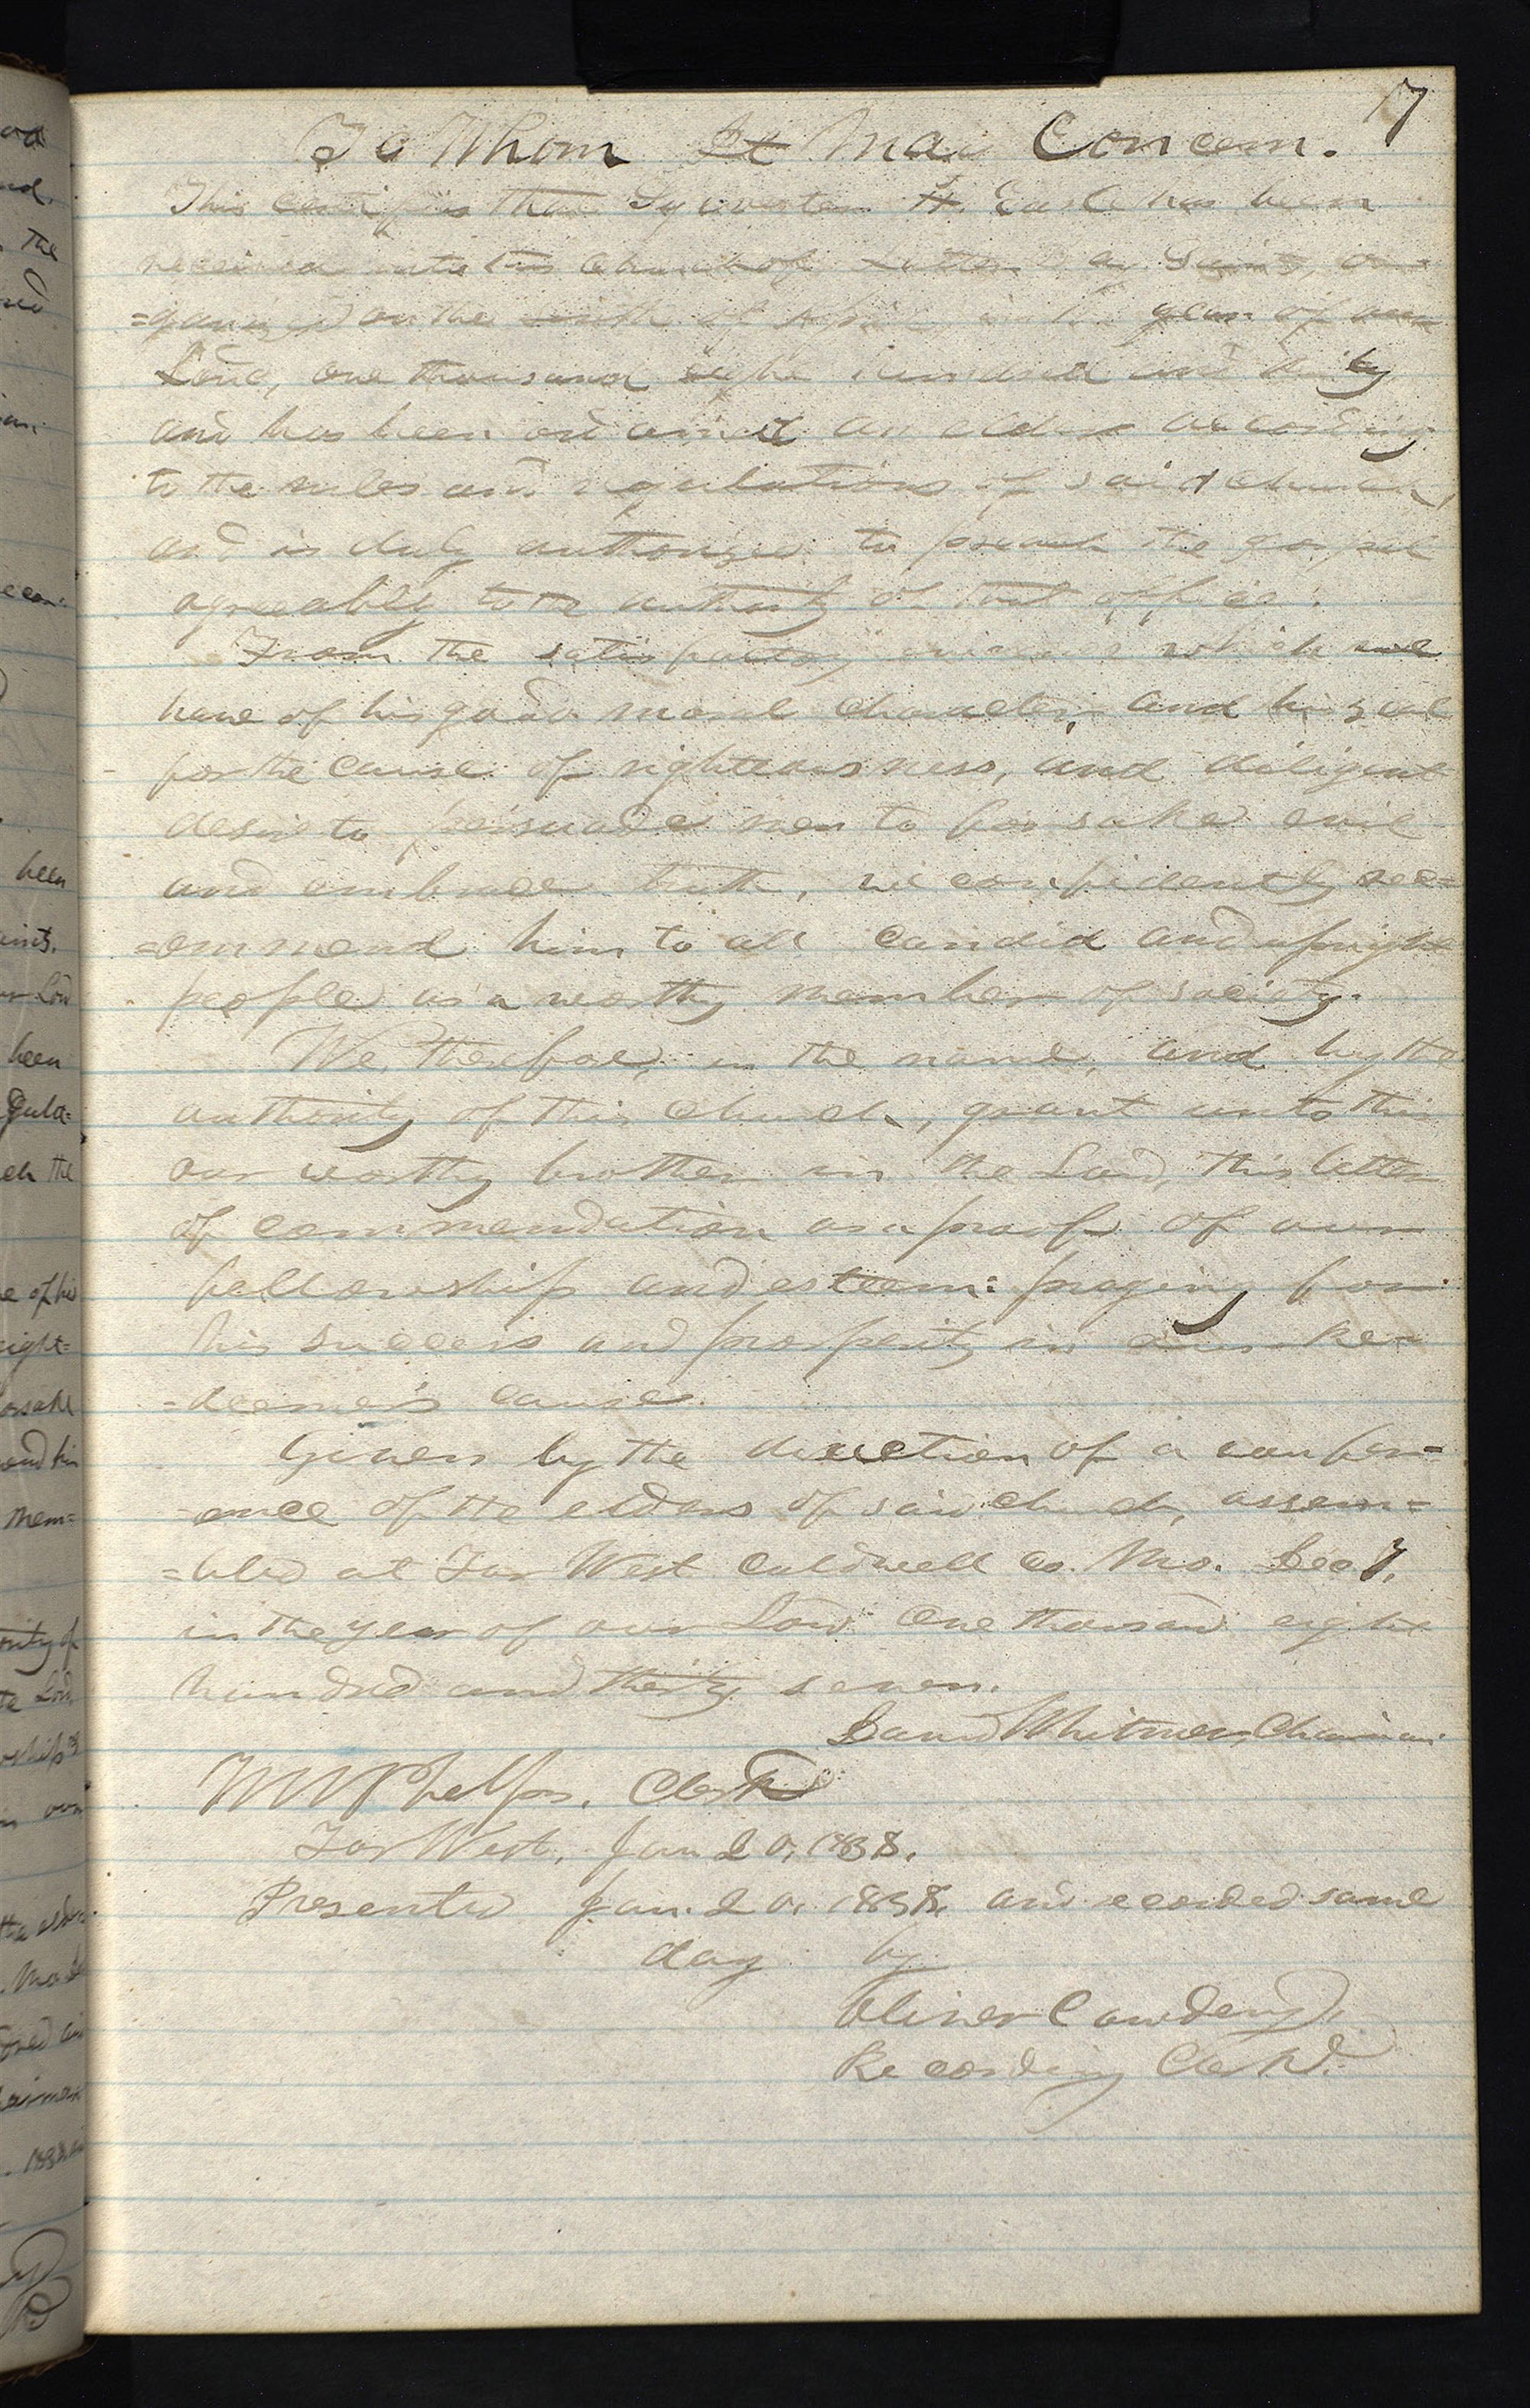 17
To Whom It May Concern.
This certifies that Sylvester H. Earle has been
received into this church of Latter Day Saints, or=
=ganized on the sixth of April, in the year of our
Lord, one thousand eight hundred and thirty
and has been ordained an elder according
to the rules and regulations of said church,
and is duly authorized to preach the gospel
agreeably to the authority of that office.
From the satisfactory evidence which we
have of his good moral character, and his zeal
for the cause of righteousness, and diligent
desire to persuade men to forsake evil
and embrace truth, we confidently rec=
=ommend him to all candid and upright
people as a worthy member of society.
We, therefore, in the name, and by the
authority of this church, grant unto this
our worthy brother in the Lord, this letter
of commendation as a proof of our
fellowship and esteem: praying for
his success and prosperity in our Re=
=deemer's cause.
Given by the direction of a confer=
=ence of the elders of said church, assem=
=bled at Far West Caldwell co. Mo. Dec 7,
in the year of our Lord one thousand eight
hundred and thirty seven.
David Whitmer, Chairman.
W W Phelps, Clerk
Far West, Jan 20, 1838.
Presented Jan. 20, 1838, and recorded same
day by
Oliver Cowdery,
Recording Clerk.
been
the
been
of his
and his
mem=